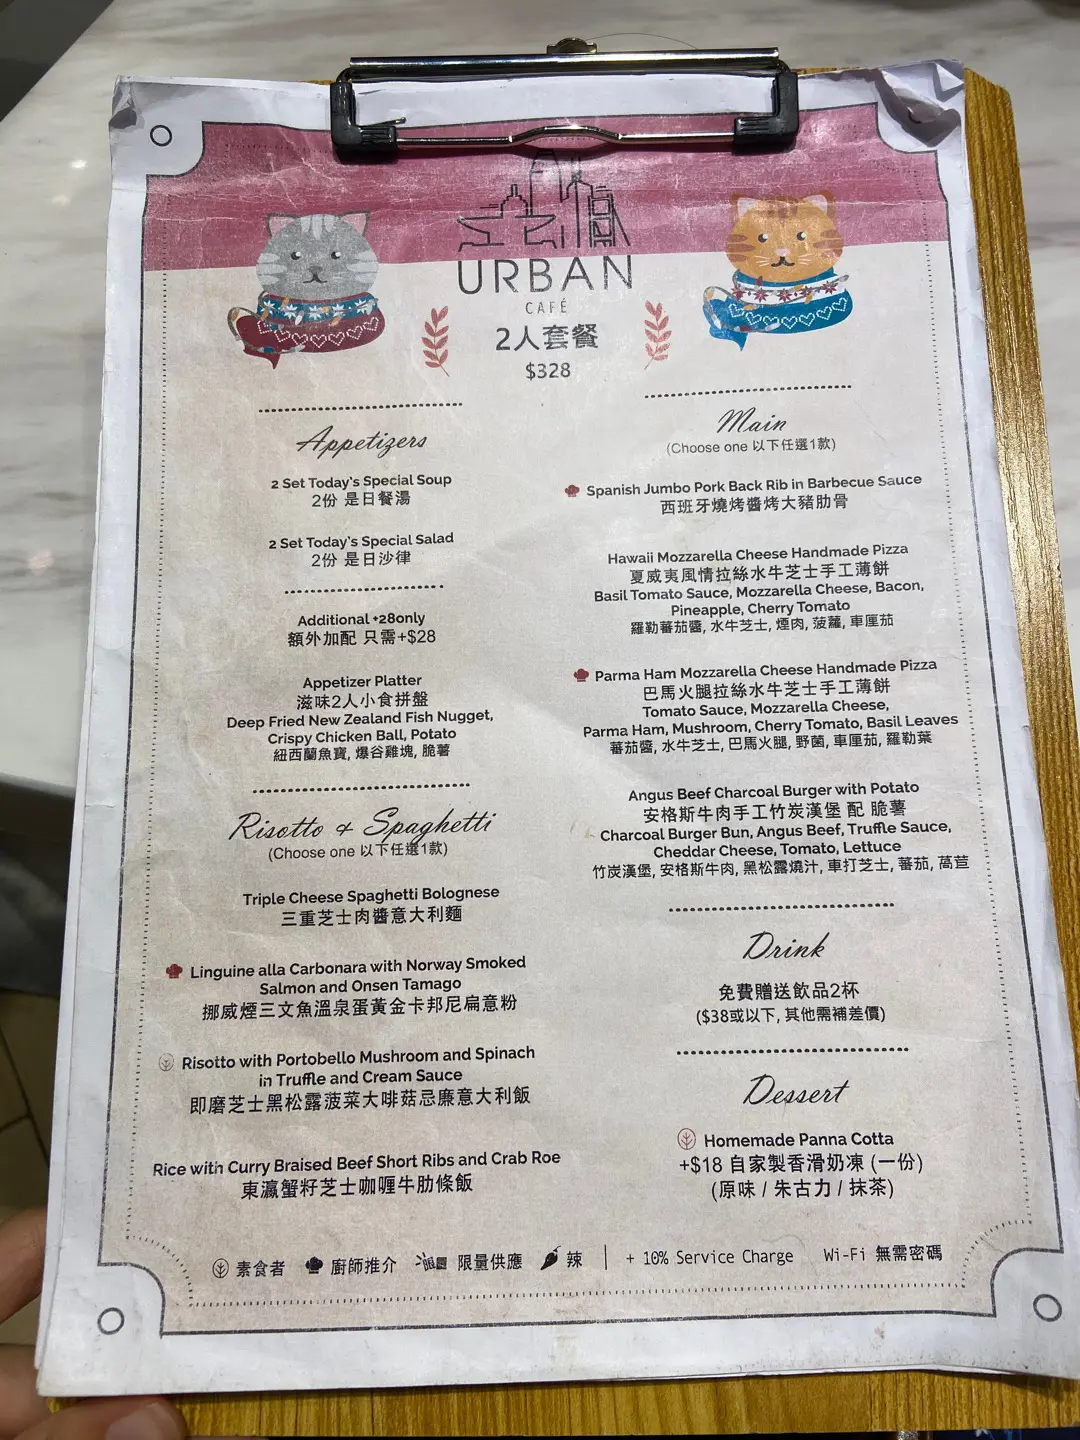 URBAN
CAFÉ
2人套餐
$328
Appetizers
2 Set Today's Special Soup
2份 是日餐湯
2 Set Today's Special Salad
2份 是日沙律
Additional +28only
額外加配 只需+$28
Appetizer Platter
滋味2人小食拼盤
Deep Fried New Zealand Fish Nugget,
Crispy Chicken Ball, Potato
紐西蘭魚寶, 爆谷雞塊, 脆薯
Risotto & Spaghetti
(Choose one 以下任選1款)
Triple Cheese Spaghetti Bolognese
三重芝士肉醬意大利麵
Linguine alla Carbonara with Norway Smoked
Salmon and Onsen Tamago
挪威煙三文魚溫泉蛋黃金卡邦尼扁意粉
Risotto with Portobello Mushroom and Spinach
in Truffle and Cream Sauce
即磨芝士黑松露菠菜大啡菇忌廉意大利飯
Rice with Curry Braised Beef Short Ribs and Crab Roe
東瀛蟹籽芝士咖喱牛肋條飯
Main
(Choose one 以下任選1款)
Spanish Jumbo Pork Back Rib in Barbecue Sauce
西班牙燒烤醬烤大豬肋骨
Hawaii Mozzarella Cheese Handmade Pizza
夏威夷風情拉絲水牛芝士手工薄餅
Basil Tomato Sauce, Mozzarella Cheese, Bacon,
Pineapple, Cherry Tomato
羅勒蕃茄醬, 水牛芝士, 煙肉, 菠蘿, 車厘茄
Parma Ham Mozzarella Cheese Handmade Pizza
巴馬火腿拉絲水牛芝士手工薄餅
Tomato Sauce, Mozzarella Cheese,
Parma Ham, Mushroom, Cherry Tomato, Basil Leaves
蕃茄醬, 水牛芝士, 巴馬火腿, 野菌, 車厘茄, 羅勒葉
Angus Beef Charcoal Burger with Potato
安格斯牛肉手工竹炭漢堡 配 脆薯
Charcoal Burger Bun, Angus Beef, Truffle Sauce,
Cheddar Cheese, Tomato, Lettuce
竹炭漢堡, 安格斯牛肉, 黑松露燒汁, 車打芝士, 蕃茄, 萵苣
Drink
免費贈送飲品2杯
($38或以下, 其他需補差價)
Dessert
Homemade Panna Cotta
+$18 自家製香滑奶凍 (一份)
(原味 / 朱古力 / 抹茶)
素食者 廚師推介 限量供應 辣 | + 10% Service Charge Wi-Fi 無需密碼